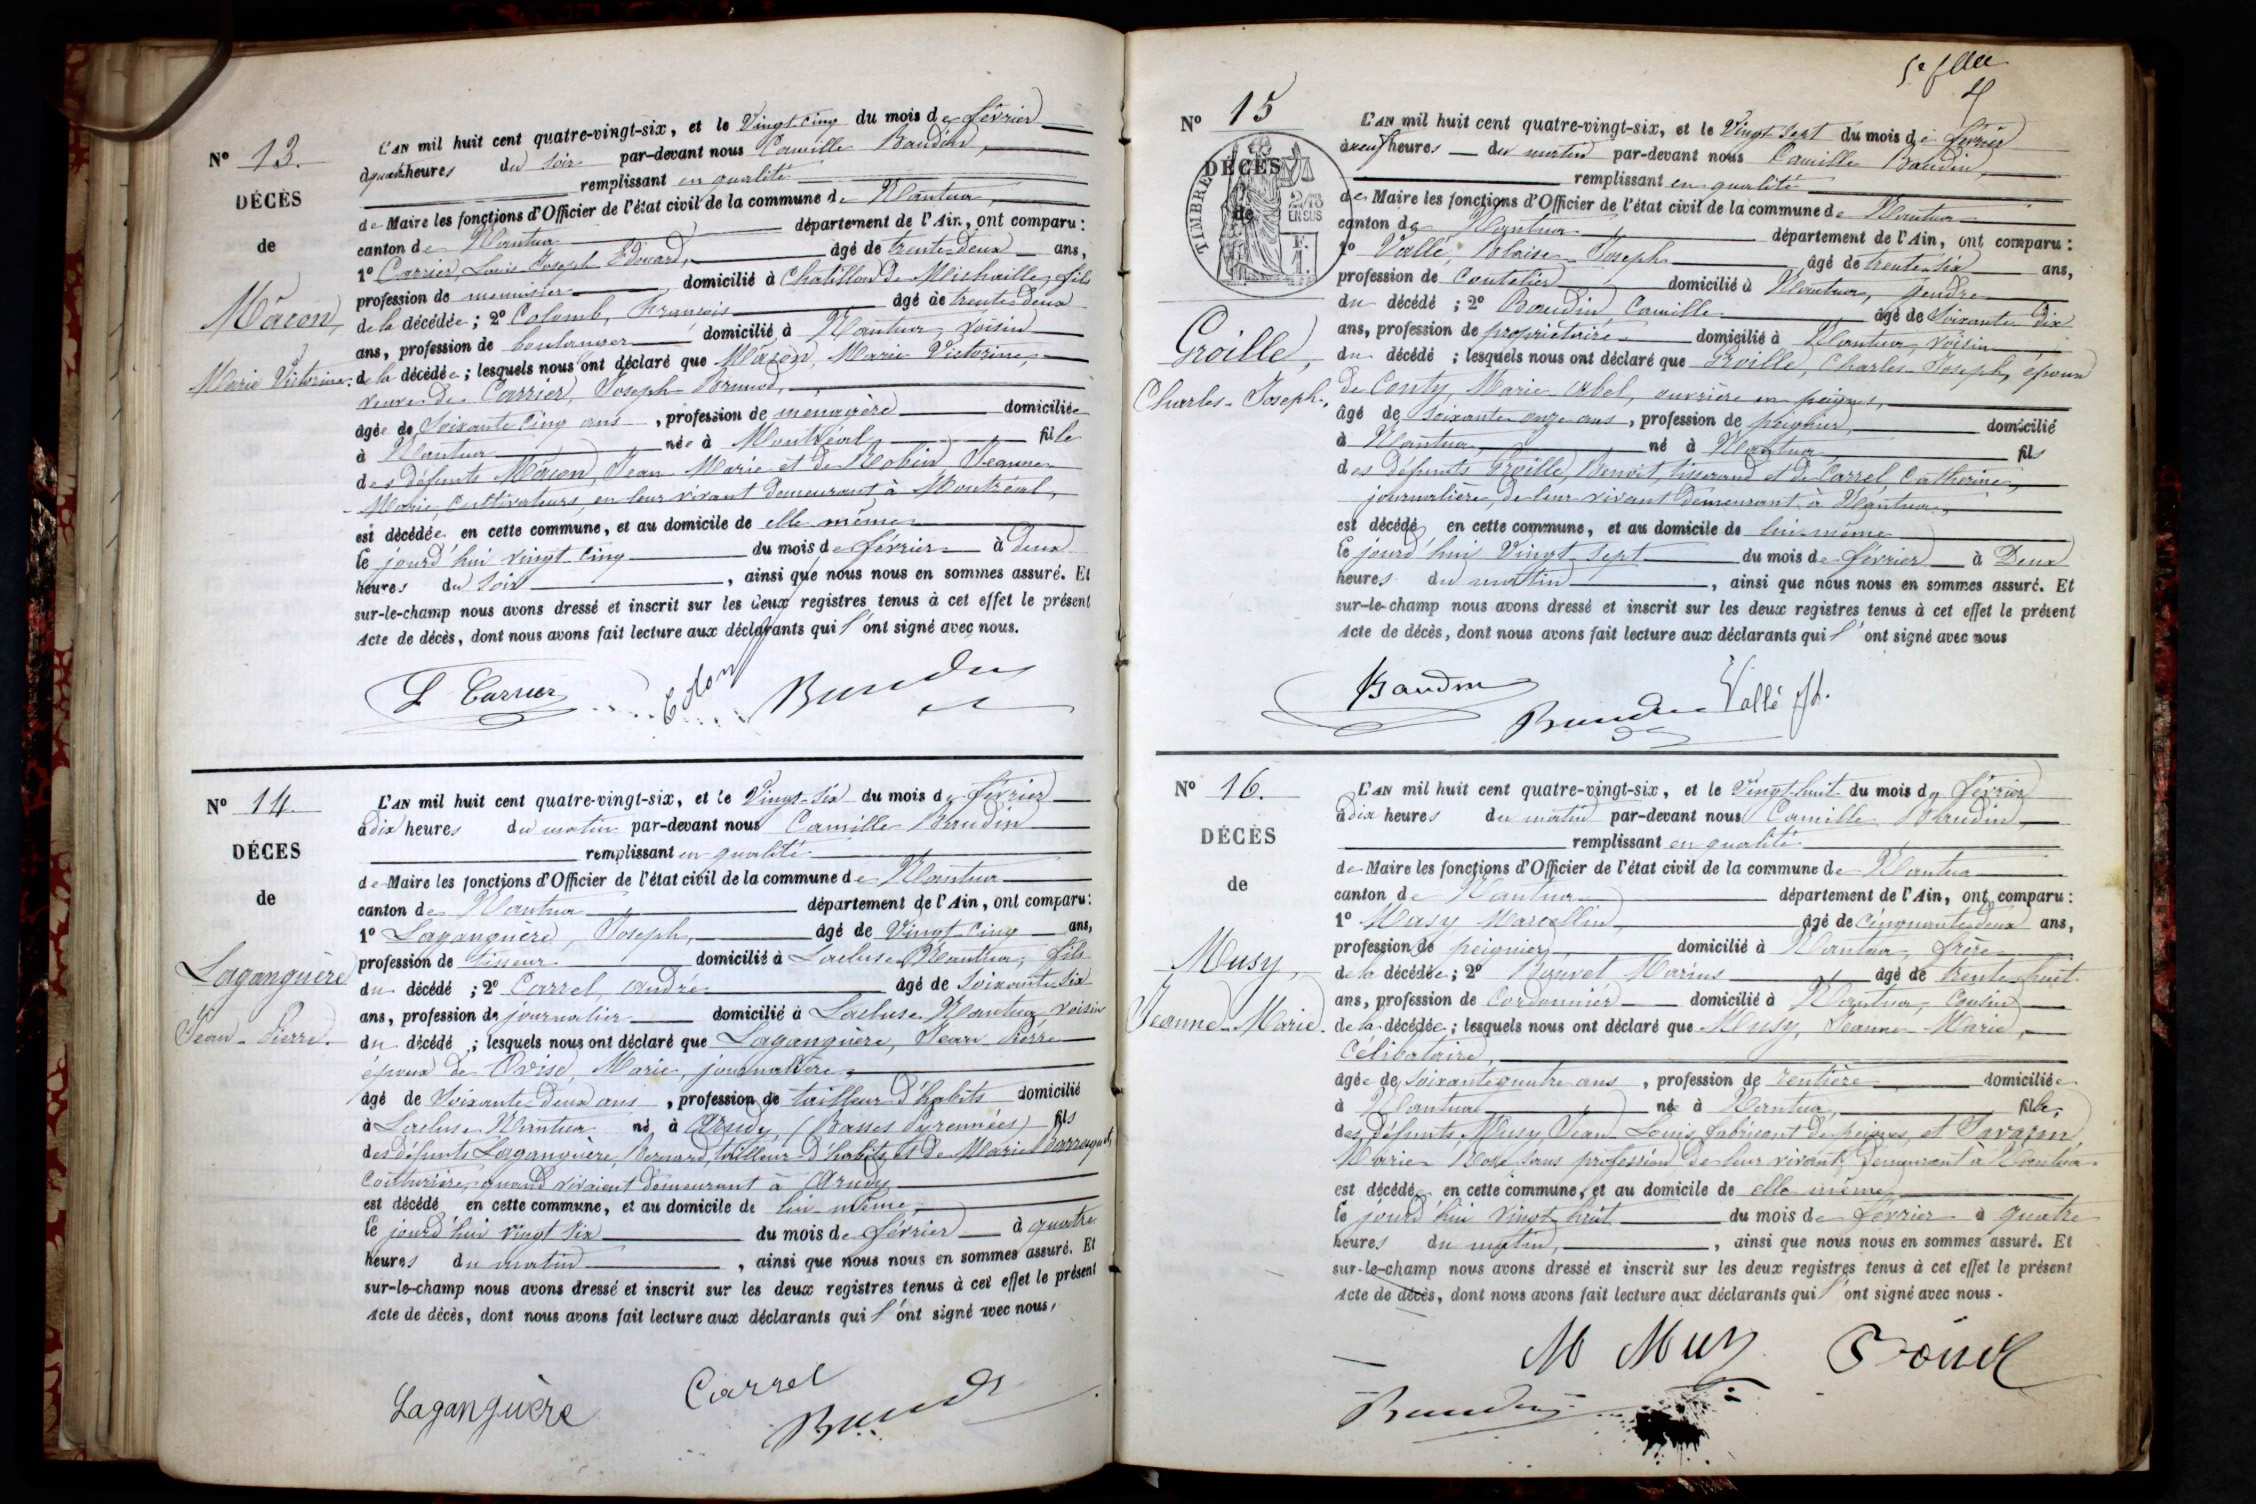 N° 13.
DÉCÈS
de
Mâcon,
Marie Victorine.
L'AN mil huit cent quatre-vingt-six, et le Vingt-cinq du mois de février
à quatre heures du soir par-devant nous Camille Baudin,
remplissant en qualité
de Maire les fonctions d'Officier de l'état civil de la commune de Nantua,
canton de Nantua département de l'Ain, ont comparu :
1° Carrier, Louis Joseph Edouard, âgé de trente-deux ans,
profession de menuisier domicilié à Chatillon de Michaille, fils
de la décédée ; 2° Colomb, François âgé de trente-deux
ans, profession de boulanger domicilié à Nantua, voisin
de la décédée ; lesquels nous ont déclaré que Mâcon, Marie Victorine,
veuve de Carrier, Joseph
âgée de soixante cinq ans , profession de ménagère domiciliée
à Nantua née à Montréal, fille
des défunts Mâcon, Jean Marie et de Robin, Jeanne
Marie, cultivateurs, en leur vivant demeurant à Montréal,
est décédée en cette commune, et au domicile de elle même
le jourd'hui vingt cinq du mois de février à deux
heures du soir , ainsi que nous nous en sommes assuré. Et
sur-le-champ nous avons dressé et inscrit sur les deux registres tenus à cet effet le présent
Acte de décès, dont nous avons fait lecture aux déclarants qui l'ont signé avec nous.
L Carrier Colomb Baudin
N° 14.
DÉCÈS
de
Laganguère
Jean-Pierre.
L'AN mil huit cent quatre-vingt-six, et le Vingt-six du mois de février
à dix heures du matin par-devant nous Camille Baudin
remplissant en qualité
de Maire les fonctions d'Officier de l'état civil de la commune de Nantua
canton de Nantua département de l'Ain, ont comparu :
1° Laganguère, Joseph, âgé de Vingt-cinq ans,
profession de tisseur domicilié à Lacluse-Nantua, fils
du décédé ; 2° Carrel, André âgé de soixante six
ans, profession de journalier domicilié à Lacluse-Nantua voisin
du décédé ; lesquels nous ont déclaré que Laganguère, Jean Pierre
époux de Marie, journalière
âgé de soixante-deux ans , profession de tailleur d'habits domicilié
à Lacluse-Nantua né à Arudy (Basses Pyrennées) fils
des défunts Laganguère, Bernard, tailleur d'habits, et de Marie
couturière, quand vivaient demeurant à Arudy
est décédé en cette commune, et au domicile de lui-même,
le jourd'hui vingt six du mois de février à quatre
heures du matin , ainsi que nous nous en sommes assuré. Et
sur-le-champ nous avons dressé et inscrit sur les deux registres tenus à cet effet le présent
Acte de décès, dont nous avons fait lecture aux déclarants qui l'ont signé avec nous,
Laganguère Carrel Baudin
N° 15
TIMBRE
2/10 EN SUS
DÉCÈS
de
Groille,
Charles-Joseph.
L'AN mil huit cent quatre-vingt-six, et le Vingt-sept du mois de février
à neuf heures du matin par-devant nous Camille Baudin,
remplissant en qualité
de Maire les fonctions d'Officier de l'état civil de la commune de Nantua
canton de Nantua département de l'Ain, ont comparu :
1° Vallé, Blaise-Joseph âgé de trente-six ans,
profession de Coutelier domicilié à Nantua, gendre
du décédé ; 2° Baudin, Camille âgé de soixante dix
ans, profession de propriétaire domicilié à Nantua, voisin
du décédé ; lesquels nous ont déclaré que Groille, Charles-Joseph, époux
de Conty, Marie ouvrière en peignes,
âgé de soixante-onze ans , profession de peignier domicilié
à Nantua, né à Nantua fils
des défunts Groille, Benoit, tisserand et de Carrel, Catherine,
journalière, de leur vivant demeurant à Nantua,
est décédé en cette commune, et au domicile de lui-même
le jourd'hui Vingt sept du mois de février à Deux
heures du matin , ainsi que nous nous en sommes assuré. Et
sur-le-champ nous avons dressé et inscrit sur les deux registres tenus à cet effet le présent
Acte de décès, dont nous avons fait lecture aux déclarants qui l'ont signé avec nous
Baudin Baudin Vallé
N° 16.
DÉCÈS
de
Musy,
Jeanne-Marie.
L'AN mil huit cent quatre-vingt-six, et le Vingt-huit du mois de février
à dix heures du matin par-devant nous Camille Baudin,
remplissant en qualité
de Maire les fonctions d'Officier de l'état civil de la commune de Nantua
canton de Nantua département de l'Ain, ont comparu :
1° Musy Marcellin âgé de cinquante-deux ans,
profession de peignier, domicilié à Nantua, frère
de la décédée ; 2° Marius âgé de trente-huit
ans, profession de Cordonnier domicilié à Nantua, cousin
de la décédée ; lesquels nous ont déclaré que Musy, Jeanne-Marie,
célibataire,
âgée de soixante quatre ans , profession de rentière domiciliée
à Nantua née à Nantua, fille,
des défunts, Musy, Jean-Louis, fabricant de peignes, et Savarin,
Marie-Rose, sans profession, de leur vivant, demeurant à Nantua
est décédée en cette commune, et au domicile de elle même,
le jourd'hui vingt-huit du mois de février à quatre
heures du matin, , ainsi que nous nous en sommes assuré. Et
sur-le-champ nous avons dressé et inscrit sur les deux registres tenus à cet effet le présent
Acte de décès, dont nous avons fait lecture aux déclarants qui l'ont signé avec nous.
M Musy
Baudin